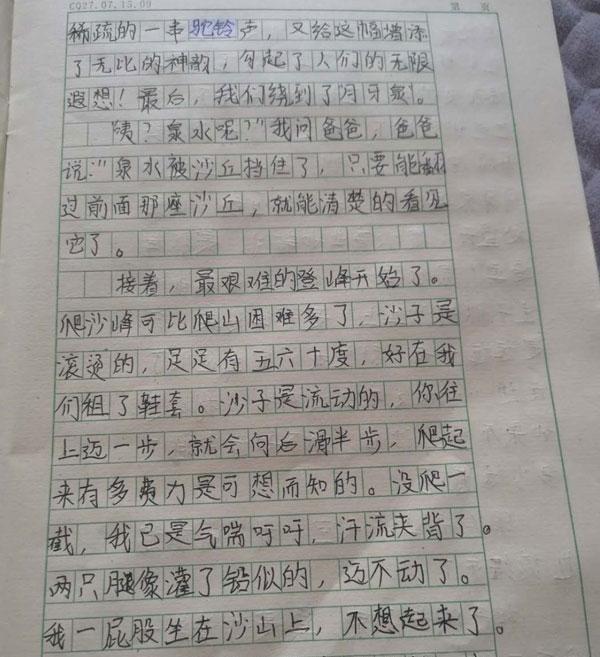 CQ27.07.15.09 第 页
稀疏的一串驼铃声，又给这幅增添
了无比的神韵，勾起了人们的无限
遐想！最后，我们绕到了月牙泉。
“咦？泉水呢？”我问爸爸，爸爸
说：“泉水被沙丘挡住了，只要能翻
过前面那座沙丘，就能清楚的看见
它了。
接着，最艰难的登峰开始了。
爬沙峰可比爬山困难多了，沙子是
滚烫的，足足有五六十度，好在我
们租了鞋套。沙子是流动的，你往
上迈一步，就会向后滑半步，爬起
来有多费力是可想而知的。没爬一
截，我已是气喘吁吁，汗流夹背了。
两只腿像灌了铅似的，迈不动了。
我一屁股坐在沙山上，不想起来了。